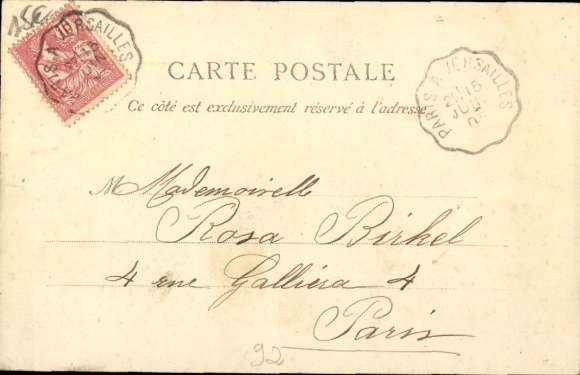 15€
PARIS A VERSAILLES
CARTE POSTALE
Ce côté est exclusivement réservé à l'adresse
PARIS A VERSAILLES
Mademoiselle
Rosa Birkel
4 rue Galliéra 4
Paris
92